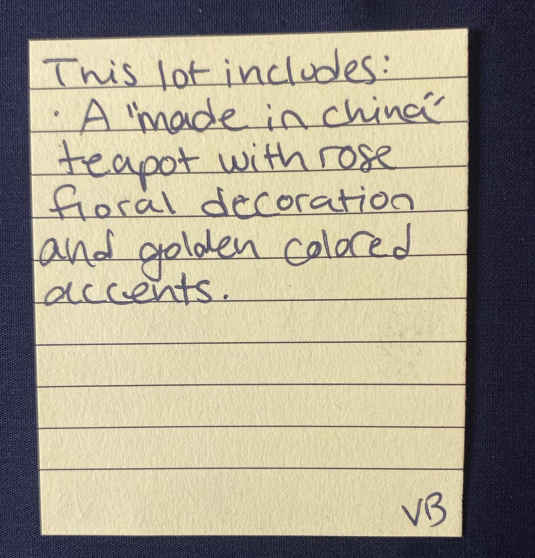 This lot includes:
· A "made in china"
teapot with rose
floral decoration
and golden colored
accents.
VB